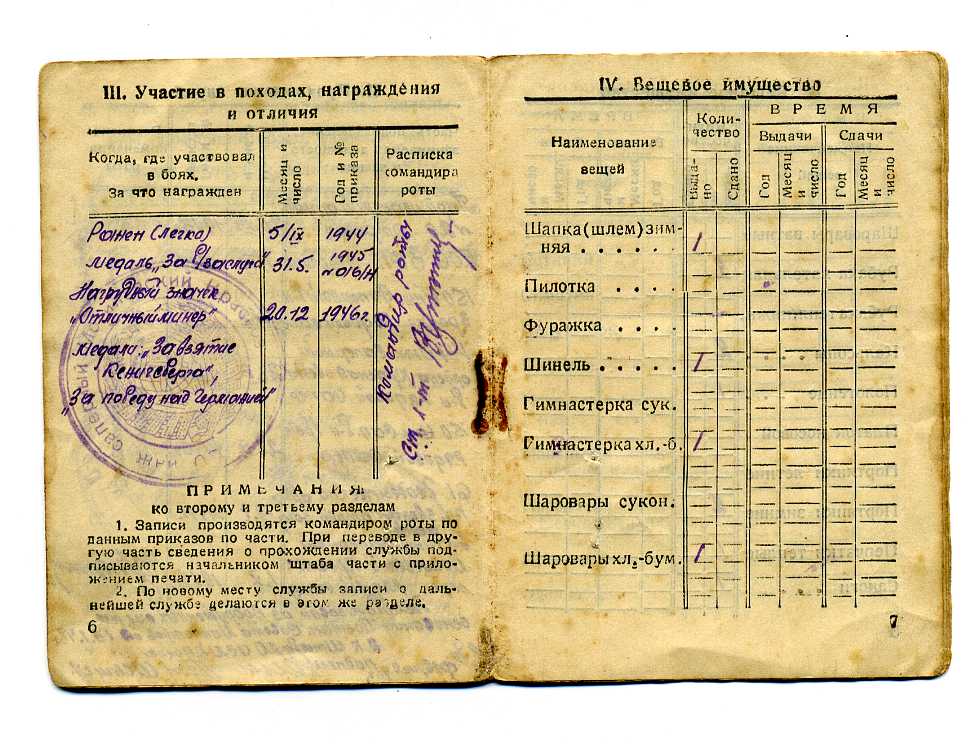 III. Участие в походах, награждения
и отличия
Когда, где участвовал
в боях.
За что награжден
Месяц и
число
Год и №
приказа
Расписка
командира
роты
Ранен (легко) 5/IX 1944
медаль „За 31.5. 1945
№ 016/Н
Нагрудный значек
„Отличный минер" 20.12 1946г.
медали: „За взятие
Кенигсберга",
„За победу над Германией"
Командир роты
ст. л-т
ПРИМЕЧАНИЯ
ко второму и третьему разделам
1. Записи производятся командиром роты по
данным приказов по части. При переводе в дру-
гую часть сведения о прохождении службы под-
писываются начальником штаба части с прило-
жением печати.
2. По новому месту службы записи о даль-
нейшей службе делаются в этом же разделе.
6
IV. Вещевое имущество
Наименование
вещей
Коли-
чество
ВРЕМЯ
Выдачи
Сдачи
Выда-
но
Сдано
Год
Месяц
и
число
Год
Месяц
и
число
Шапка (шлем) зим-
няя . . . . . 1
Пилотка . . . .
Фуражка . . . .
Шинель . . . . . 1
Гимнастерка сук.
Гимнастерка хл.-б. 1
Шаровары сукон.
Шаровары хл.-бум. 1
7